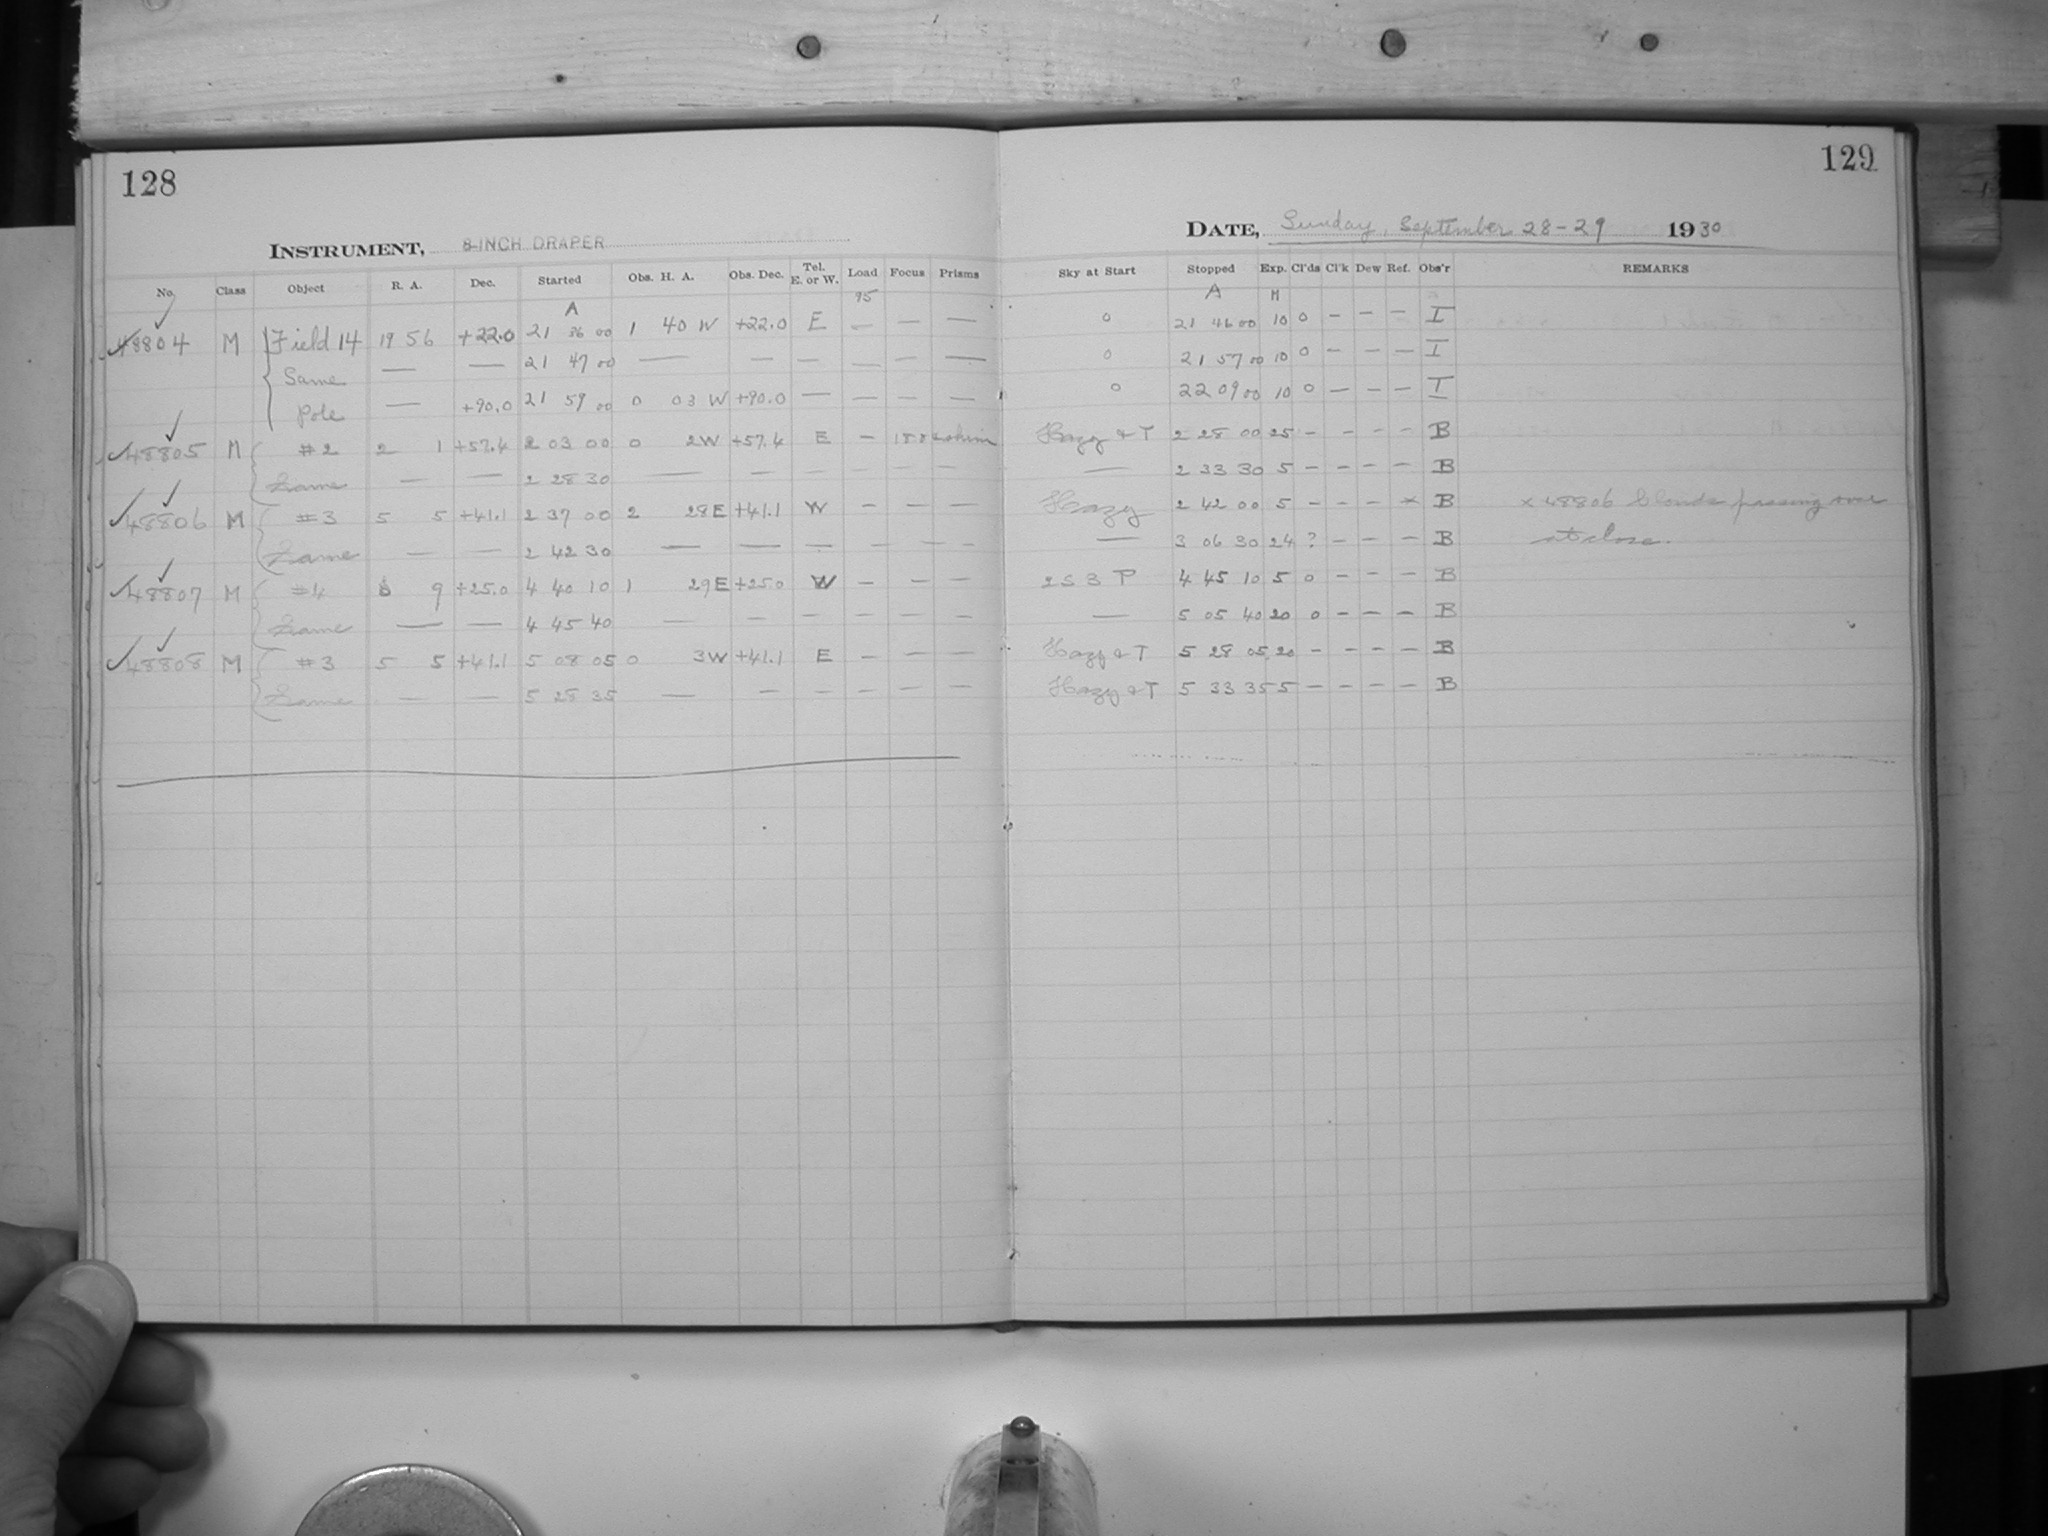 128
INSTRUMENT, 8-INCH DRAPER
No. Class Object R. A. Dec. Started Obs. H. A. Obs. Dec. Tel. E. or W. Load Focus Prisms
A 95
48804 M Field 14 19 56 +22.0 21 36 00 1 40 W +22.0 E — — —
Same — — 21 47 00 — — — — — —
Pole — +90.0 21 59 00 0 03 W +90.0 — — — —
48805 M #2 2 1 +57.4 2 03 00 0 2W +57.4 E —
Same — — 2 28 30 — — — — — —
48806 M #3 5 5 +41.1 2 37 00 2 28E +41.1 W — — —
Same — — 2 42 30 — — — — — —
48807 M #4 9 +25.0 4 40 10 1 29E +25.0 W — — —
Same — — 4 45 40 — — — — — —
48808 M #3 5 5 +41.1 5 08 05 0 3W +41.1 E — — —
Same — — 5 28 35 — — — — — —
129
DATE, Sunday, September 28-29 1930
Sky at Start Stopped Exp. Cl'ds Cl'k Dew Ref. Obs'r REMARKS
A M
0 21 46 00 10 0 — — — I
0 21 57 00 10 0 — — — I
0 22 09 00 10 0 — — — I
Hazy & T 2 28 00 25 — — — — B
— 2 33 30 5 — — — — B
Hazy 2 42 00 5 — — — x B x 48806 Clouds passing over
— 3 06 30 24 ? — — — B at close.
2 S 3 T 4 45 10 5 0 — — — B
— 5 05 40 20 0 — — — B
Hazy & T 5 28 05 20 — — — — B
Hazy & T 5 33 35 5 — — — — B